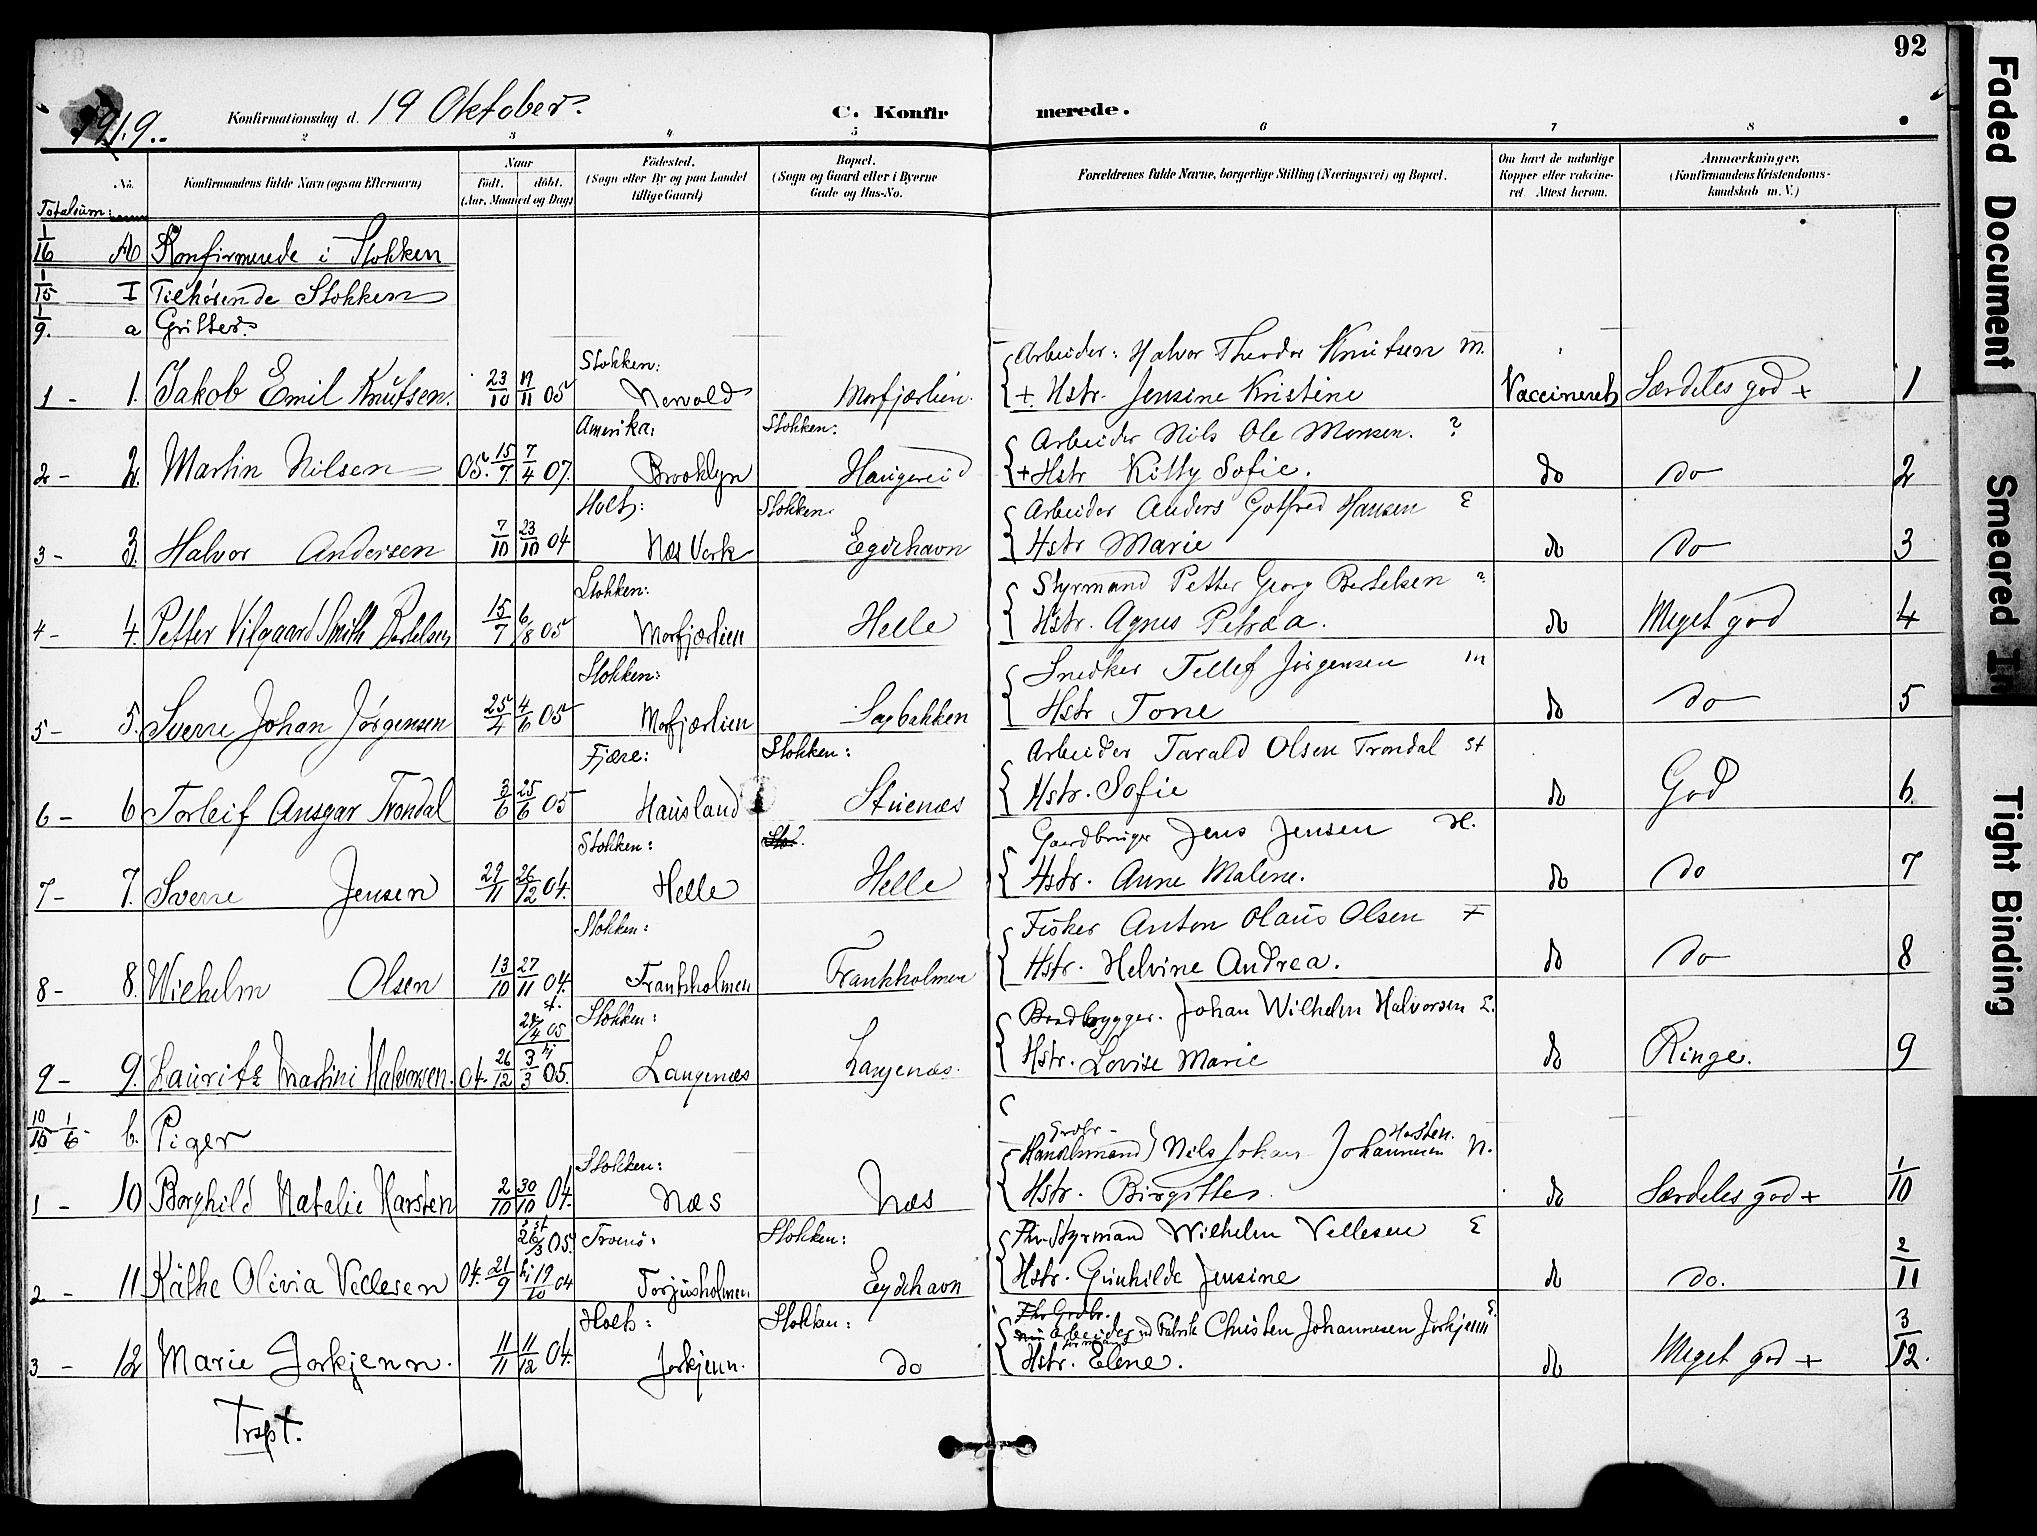 92
1919. Konfirmationsdag d. 19 Oktober. C. Konfirmerede.
2 3 4 5 6 7 8
No. Konfirmandens fulde Navn (ogsaa Efternavn) Naar født. døbt. (Aar, Maaned og Dag) Fødested. (Sogn eller By og paa Landet tillige Gaard) Bopæl. (Sogn og Gaard eller i Byerne Gade og Hus-No.) Forældrenes fulde Navne, borgerlige Stilling (Næringsvei) og Bopæl. Om havt de naturlige Kopper eller vaccineret. Attest herom. Anmærkninger, (Konfirmandens Kristendomskundskab m. V.)
Totalsum:
1/16 A Konfirmerede i Stokken
1/15 I Tilhørende Stokken
1/9. a Gutter
Stokken: Arbeider: Halvor Theodor Knutsen M.
1 - 1. Jakob Emil Knutsen. 23/10 19/11 05 Nesvold Morfjærlien. + Hstr. Jensine Kristine Vaccineret Særdeles god + 1
Amerika: Stokken: Arbeider Nils Ole Monsen. ?
2 - 2. Martin Nilsen 05. 15/7 7/4 07. Brooklyn Haugereid + Hstr Kitty Sofie. do do 2
Holt: Stokken: Arbeider Anders Gotfred Hansen E
3 - 3. Halvor Andersen 7/10 23/10 04 Næs Verk Eydehavn Hstr Marie do do 3
Stokken: Styrmand Petter Georg Bertelsen ?
4 - 4. Petter Vilgaard Smith Bertelsen 15/7 6/8 05 Morfjærlien Helle Hstr. Agnes Petrea. do Meget god 4
Stokken: Snedker Tellef Jørgensen m
5 - 5. Sverre Johan Jørgensen 25/4 4/6 05 Morfjærlien Sagbakken Hstr Tone do do 5
Fjære: Stokken: Arbeider Tarald Olsen Trondal st
6 - 6 Torleif Ansgar Trondal 3/6 25/6 05 Hausland Stuenæs Hstr. Sofie do God 6.
Stokken: Gaardbruger Jens Jensen H.
7 - 7. Sverre Jensen 29/11 26/12 04. Helle Helle Hstr. Anne Malene. do do 7
Stokken: Fisker Anton Olaus Olsen F
8 - 8. Wilhelm Olsen 13/10 27/11 04. Frankholmen Frankholmen Hstr. Helvine Andrea. do do 8
st. 05 Stokken: Johan Wilhelm Halvorsen E.
9 - 9. Lauritz Martini Halvorsen. 04. 26/12 3/3 hj 05. Langenæs Langenæs. Hstr. Lovise Marie do Ringe. 9
10/15 - 1/6 - b. Piger
Stokken: Grdbr - Handelsmand Nils Johan Johannesen Harsten. N.
1 - 10 Borghild Natalie Harsten 2/10 30/10 04. Næs Næs Hstr. Birgitte. do Særdeles god + 1/10
st 26/3 05. Tromø: Stokken: Styrmand Wilhelm Vellesen E
2 - 11 Käthe Olivia Vellesen 04. 21/9 hj 19/10 04 Torjusholmen Eydehavn Hstr. Gunhilde Jensine do do. 2/11
Holt: Stokken: Arbeider ved Fabrik Christen Johannesen Jorkjenn E.
3 - 12 Marie Jorkjenn. 11/11 11/12 04. Jorkjenn. do Hstr. Elene. do Meget god + 3/12.
Trspt.
Faded Document
Smeared In
Tight Binding